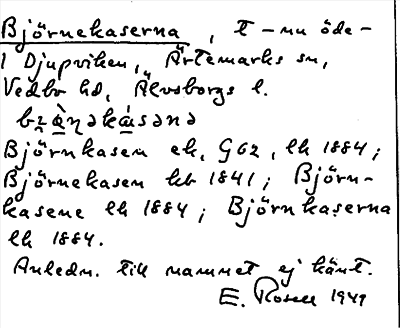 Björnekaserna, t – nu öde –
i Djupviken, Ärtemarks sn,
Vedbo hd, Älvsborgs l.
Björnkasen ek, G62, lk 1884;
Björnekasen kb 1841; Björn-
kasene lk 1884; Björnkaserna
lk 1884.
Anledn. till namnet ej känt.
E. Rosell 1949